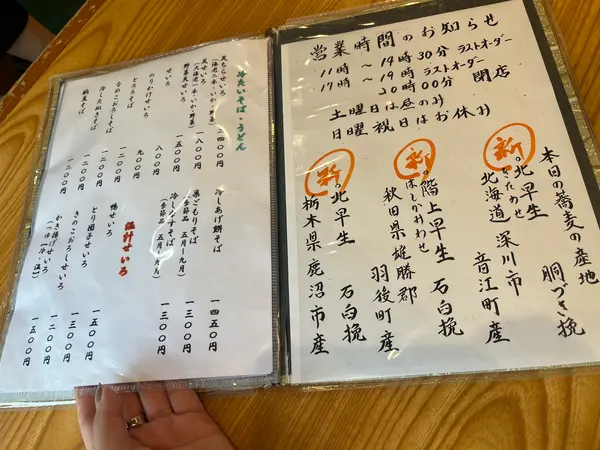 営業時間のお知らせ
11時 〜 14時30分 ラストオーダー
17時 〜 19時 ラストオーダー
20時00分 閉店
土曜日は昼のみ
日曜祝日はお休み
本日の蕎麦の産地
新 北早生 胴づき挽
きたわせ
北海道 深川市 音江町産
新 階上早生 石臼挽
はしかみわせ
秋田県雄勝郡 羽後町産
新 北早生 石臼挽
栃木県鹿沼市産
冷たいそば・うどん
天ちらせいろ 二四〇〇円
(大海老二本・いか・野菜)
天せいろ 一八〇〇円
(大海老・いか・野菜)
野菜天せいろ 一五〇〇円
せいろ 八〇〇円
のりかけせいろ 九〇〇円
とろろそば 一二〇〇円
なめこおろしそば 一二〇〇円
冷したぬきそば 一二〇〇円
納豆そば 一二〇〇円
冷しあげ餅そば 一四五〇円
巣ごもりそば 一三〇〇円
(季節品 五月〜九月)
冷しなすそば 一三〇〇円
(季節品 五月〜九月)
温汁せいろ
鴨せいろ 一五〇〇円
とり団子せいろ 一三〇〇円
きのこおろしせいろ 一二〇〇円
かき揚げせいろ 一五〇〇円
(つゆ(冷・温))